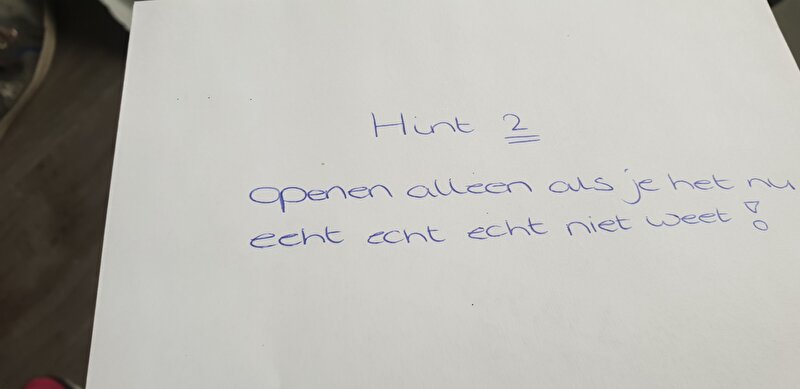 Hint 2
openen alleen als je het nu
echt echt echt niet weet!